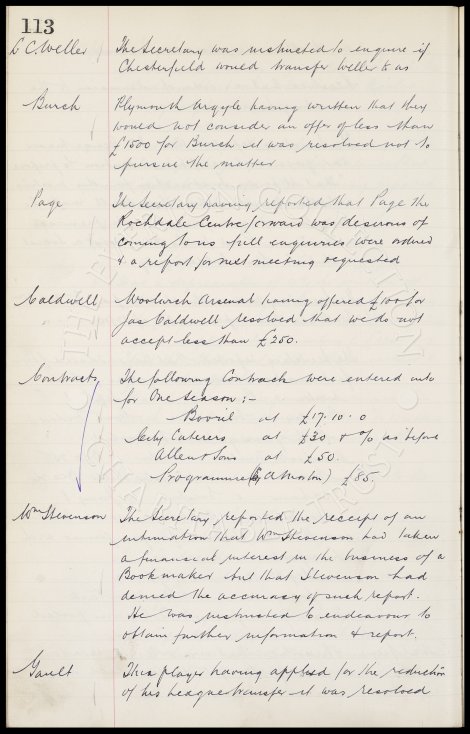 113
L C. Weller The Secretary was instructed to enquire if
Chesterfield would transfer Weller to us
Burch Plymouth Argyle having written that they
would not consider an offer of less than
£1500 for Burch it was resolved not to
pursue the matter
Page The Secretary having reported that Page the
Rochdale Centre forward was desirous of
coming to us full enquiries were ordered
& a report for next meeting requested
Caldwell Woolwich Arsenal having offered £100 for
Jas Caldwell resolved that we do not
accept less than £250.
Contracts The following Contracts were entered into
for One Season :-
Bovril at £17.10.0
City Caterers at £30 & % as before
Allen & Sons at £50.
Programme ( A Morton) £85.
Wm Stevenson The Secretary reported the receipt of an
intimation that Wm Stevenson had taken
a financial interest in the business of a
Bookmaker but that Stevenson had
denied the accuracy of such report.
He was instructed to endeavour to
obtain further information & report.
Gault This player having applied for the reduction
of his league transfer it was resolved